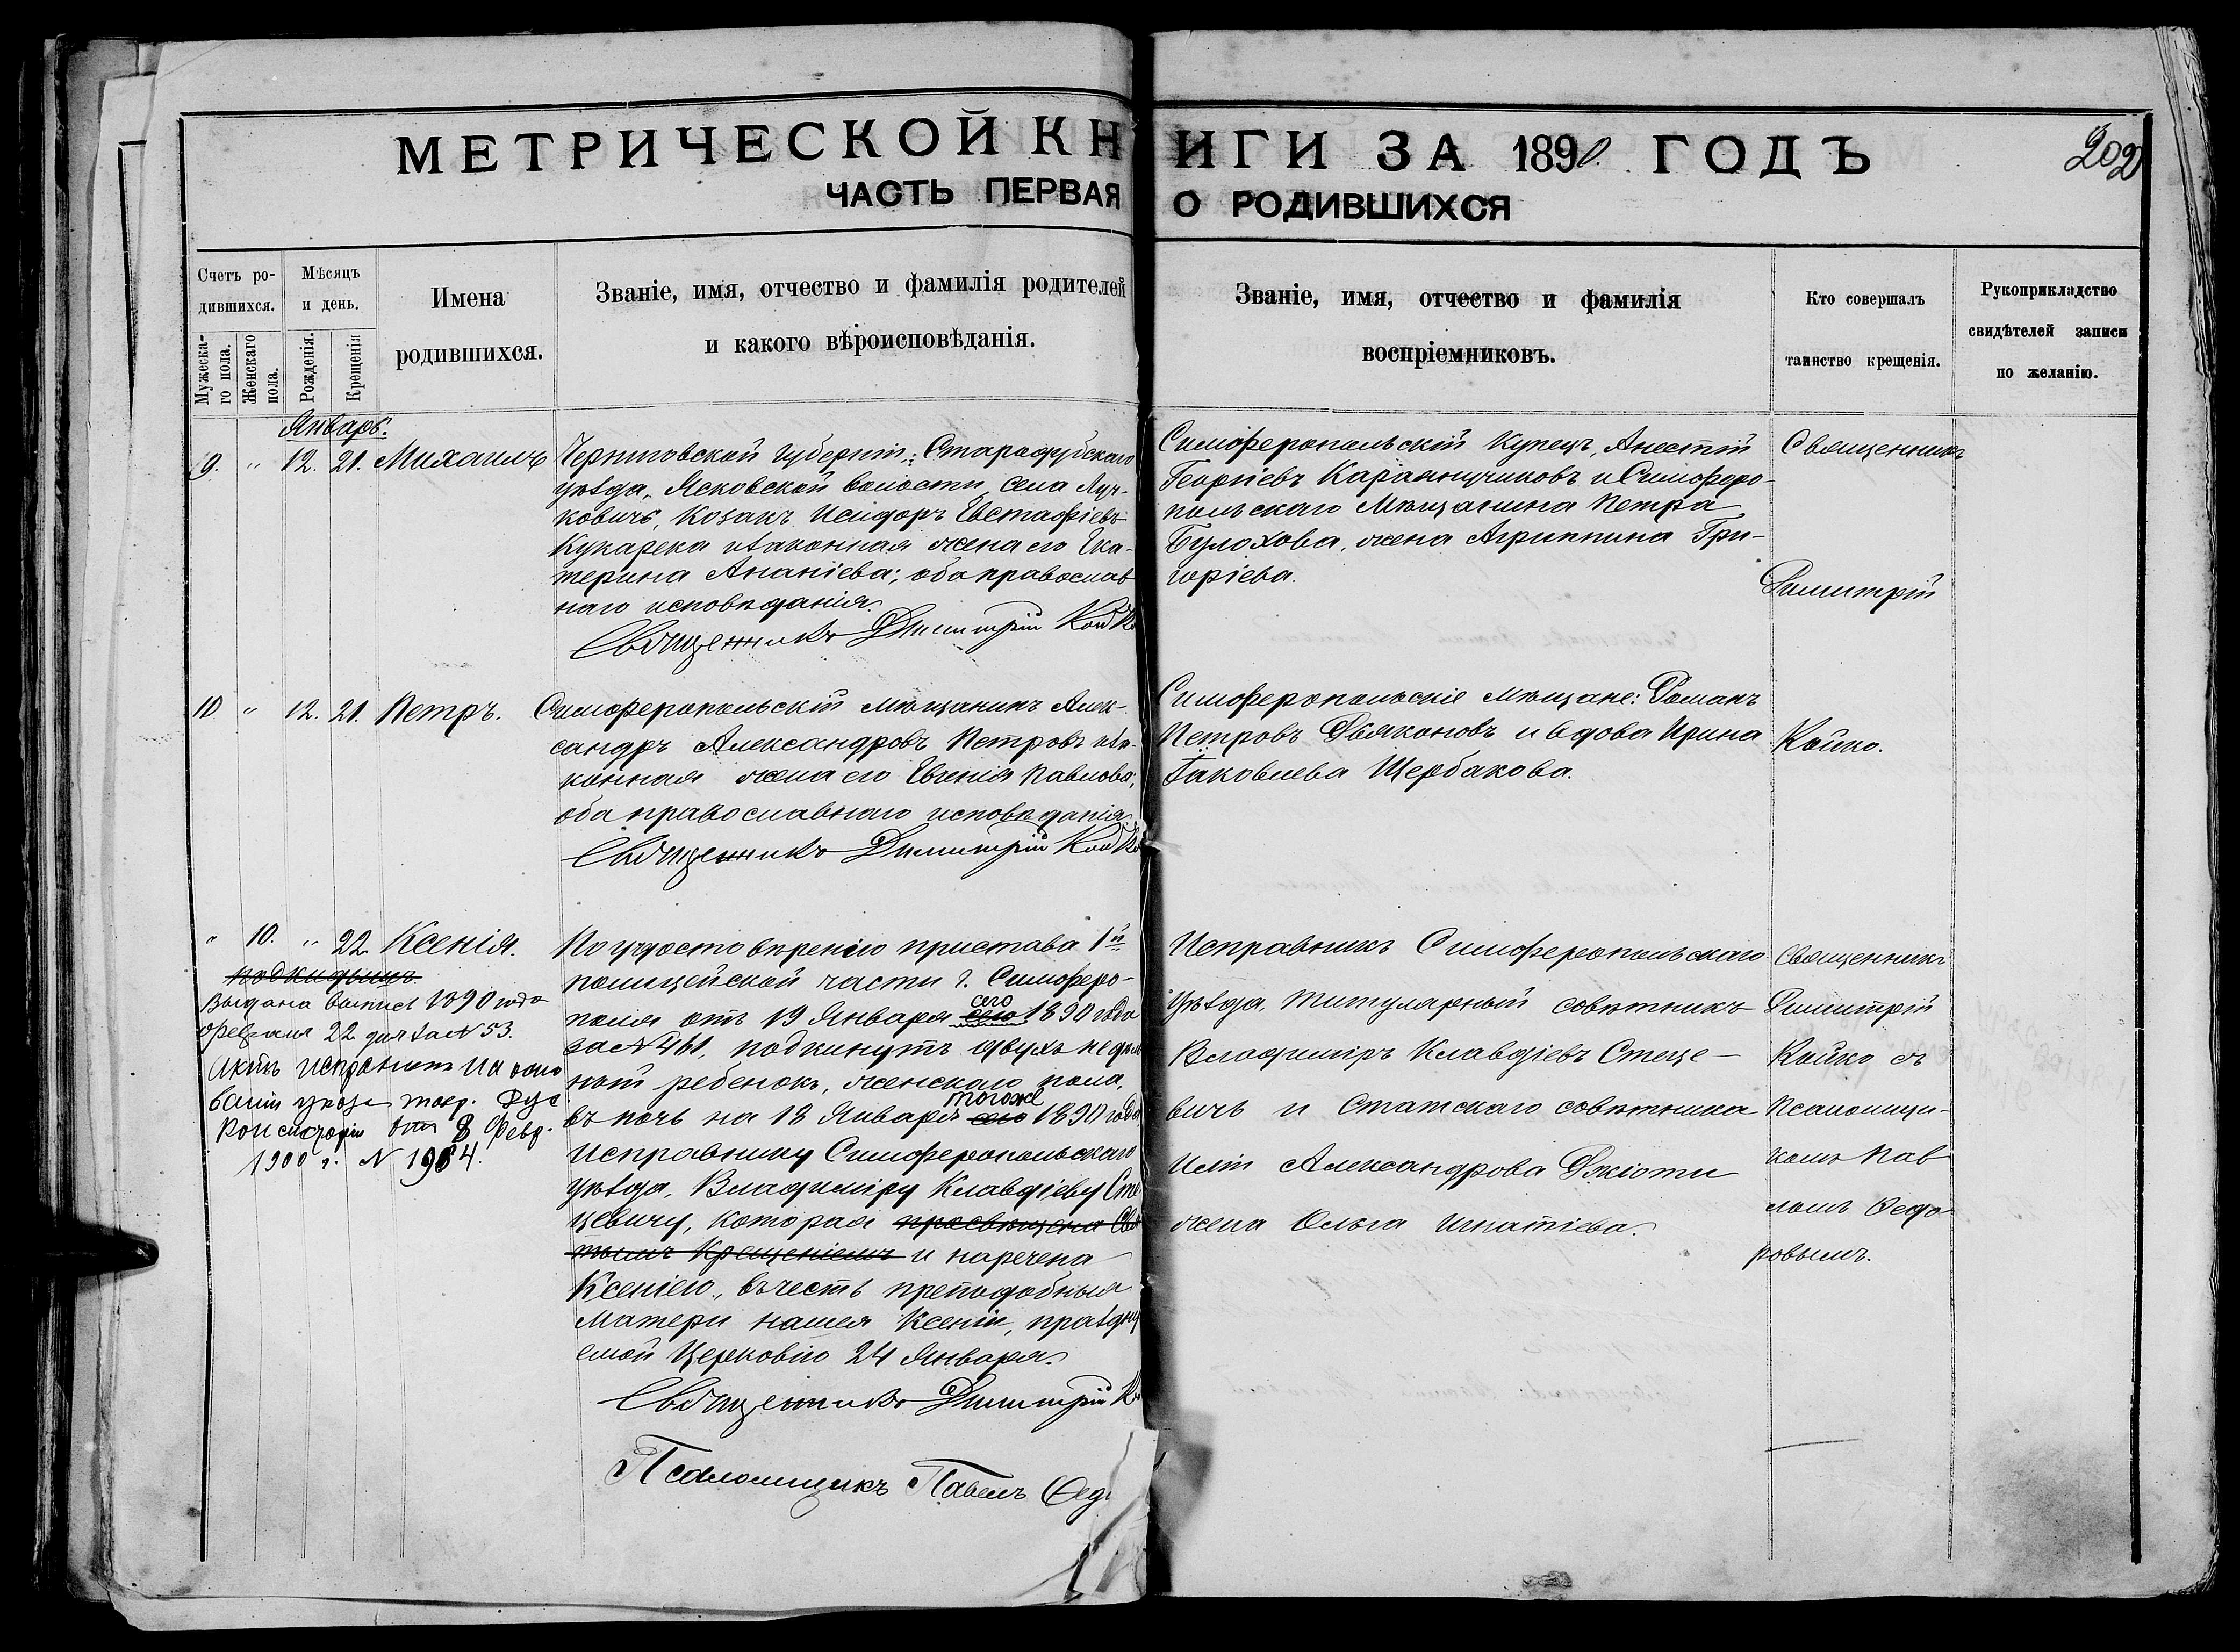 МЕТРИЧЕСКОЙ КНИГИ ЗА 1890. ГОДЪ
202
ЧАСТЬ ПЕРВАЯ О РОДИВШИХСЯ
Счетъ ро-
дившихся.
Мужеска-
го пола.
Женскаго
пола.
Мѣсяцъ
и день.
Рожденія.
Крещенія
Имена
родившихся.
Званіе, имя, отчество и фамилія родителей
и какого вѣроисповѣданія.
Званіе, имя, отчество и фамилія
воспріемниковъ.
Кто совершалъ
таинство крещенія.
Рукоприкладство
свидѣтелей записи
по желанію.
Январь.
9. " 12. 21. Михаилъ
Черниговской губерніи, Стародубскаго
уѣзда, волости, села Луч-
ковичь, Козакъ Исидоръ Евстафіевъ
Кукарека и законная жена его Ека-
терина Ананіева; оба православ
наго исповѣданія.
Священникъ Димитрій Кой
Симферопольскій Купецъ, Анестій
Георгіевъ и Симферо-
польскаго Мѣщанина Петра
Булохова, жена Агриппина Гри-
горіева.
Священникъ
Димитрій
Койко.
10. " 12. 21. Петръ.
Симферопольскій мѣщанинъ Алек-
сандръ Александровъ Петровъ и за-
конная жена его Евгенія Павлова;
оба православнаго исповѣданія.
Священникъ Димитрій Кой
Симферопольскіе мѣщане: Романъ
Петровъ Дьяконовъ и вдова Ирина
Іаковлева Щербакова.
" 10. " 22. Ксенія.
подкидышъ
Выдана выпись 1890 года
Февраля 22 дня за № 53.
Актъ исправленъ на осно
ваніи указа Тавр. Дух.
Консисторіи отъ 8 Февр.
1900 г. № 1984.
По удостовѣренію пристава 1й
полицейской части г. Симферо-
поля отъ 19 Января сего 1890 года
за № 461, подкинутъ двухъ недѣль
ный ребенокъ, женскаго пола,
въ ночь на 13 Января тогоже 1890 года
Исправнику Симферопольскаго
уѣзда, Владиміру Клавдіеву Сте
цевичу, которая просвѣщена Свя
тымъ Крещеніемъ и наречена
Ксеніею, въ честь преподобныя
Матери нашея Ксеніи, праздну
емой Церковію 24 Января.
Священникъ Димитрій К
Псаломщикъ Павелъ Ѳед
Исправникъ Симферопольскаго
уѣзда, титулярный совѣтникъ
Владиміръ Клавдіевъ Стеце-
вичъ и Статскаго совѣтника
Иліи Александрова Джіоти
жена Ольга Игнатіева.
Священникъ
Димитрій
Койко съ
Псаломщи-
комъ Пав
ломъ Ѳедо-
ровымъ.